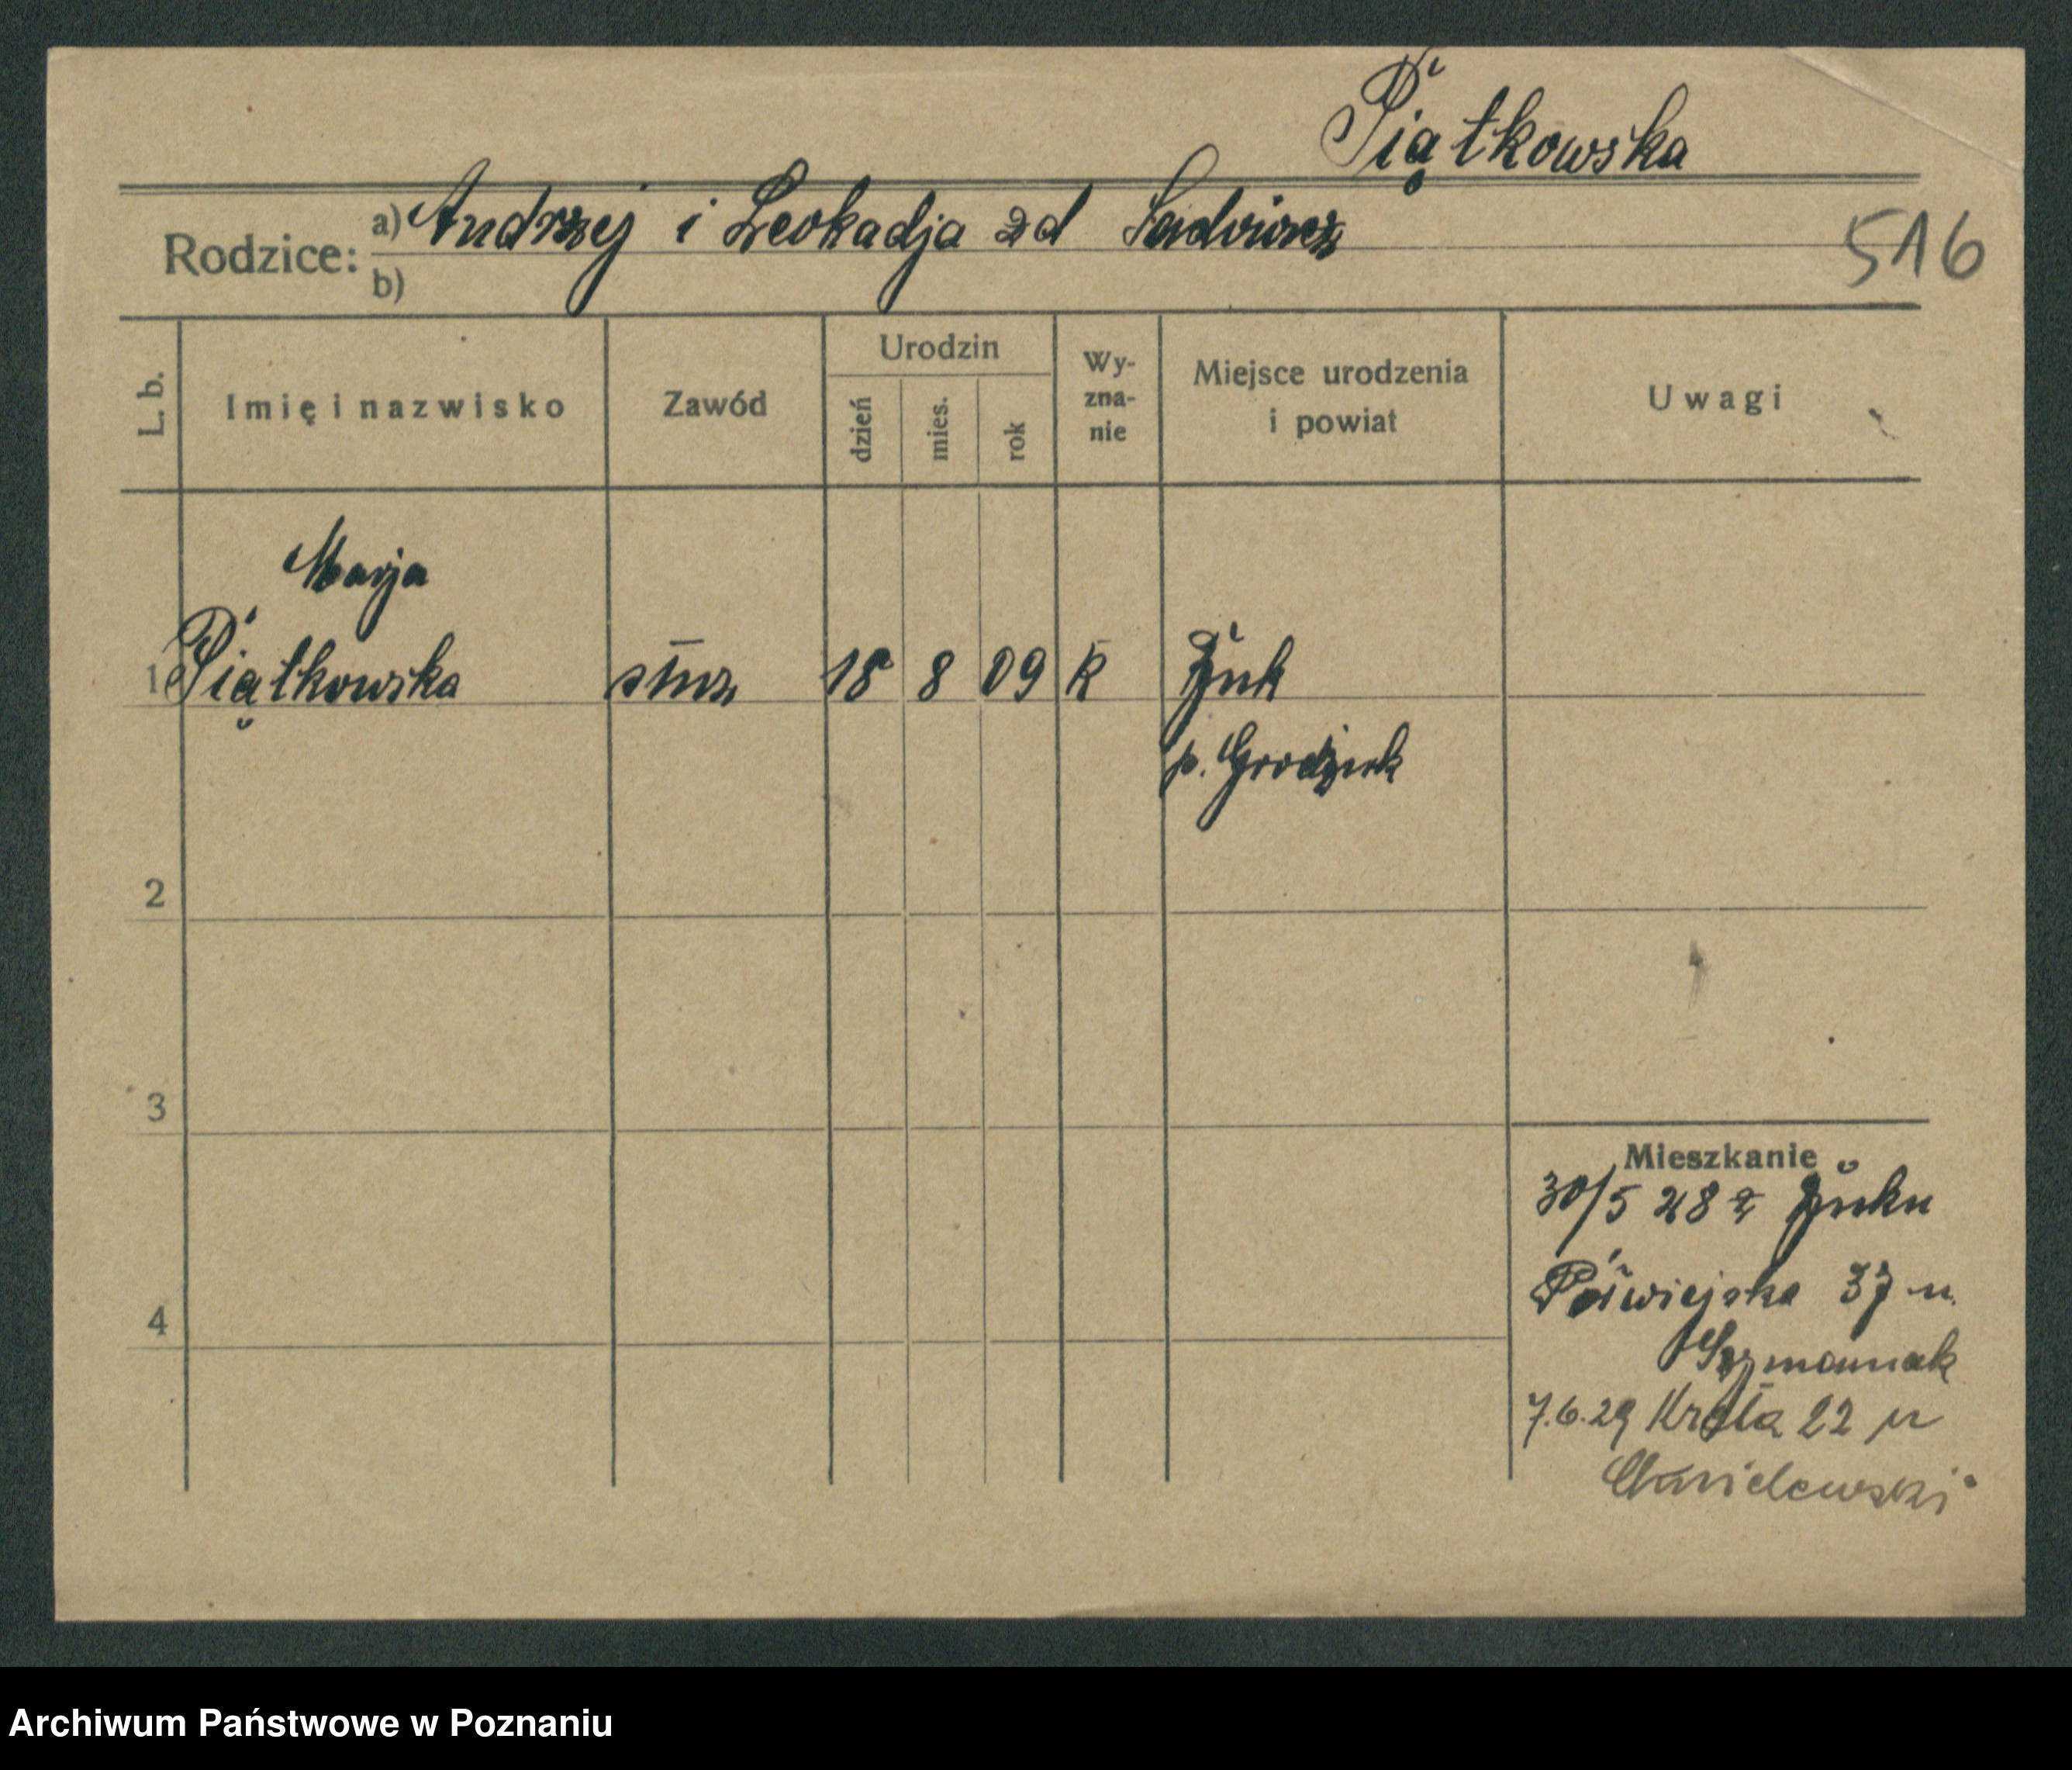 Piątkowska
Rodzice: a) Andrzej i Leokadja zd
b)
516
L. b.
Imię i nazwisko
Zawód
Urodzin
dzień
mies.
rok
Wy-
zna-
nie
Miejsce urodzenia
i powiat
Uwagi
Marja
1 Piątkowska
18 8 09 k Żuk
p.
2
3
4
Mieszkanie
30/5 28 z Żuku
Półwiejska 37 u.
Szymaniak
7.6.29 22 u
Archiwum Państwowe w Poznaniu